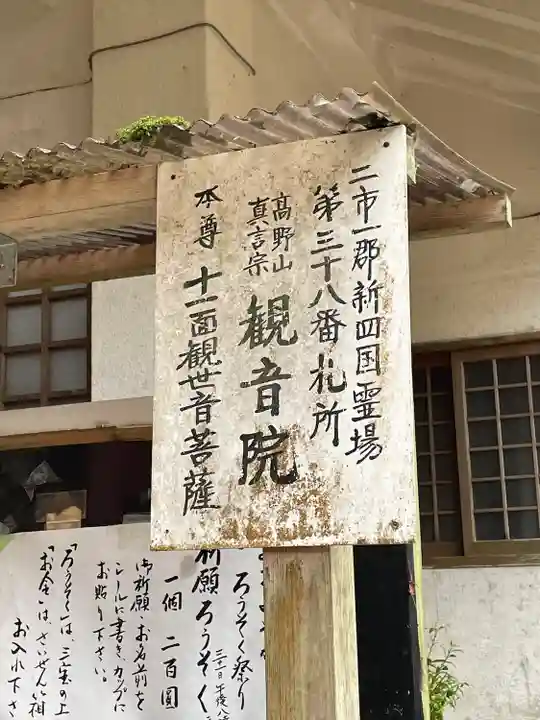 二市一郡新四国霊場
第三十八番札所
高野山
真言宗
観音院
本尊 十一面観世音菩薩
ろうそく祭り
祈願ろうそく
一個 二百圓
御祈願・お名前を
シールに書きカップに
お貼り下さい。
「ろうそく」は、三宝の上
「お金」は、さいせん箱
お入れ下さ